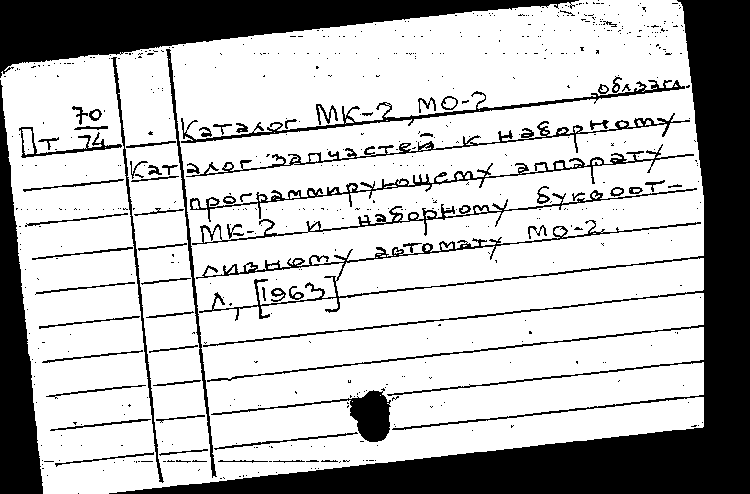 Пт 70/74 Каталог МК-2, МО-2, обл. загл.
Каталог запчастей к наборному
программирующему аппарату
МК-2 и наборному буквоот-
ливному автомату МО-2.
Л., [1963]